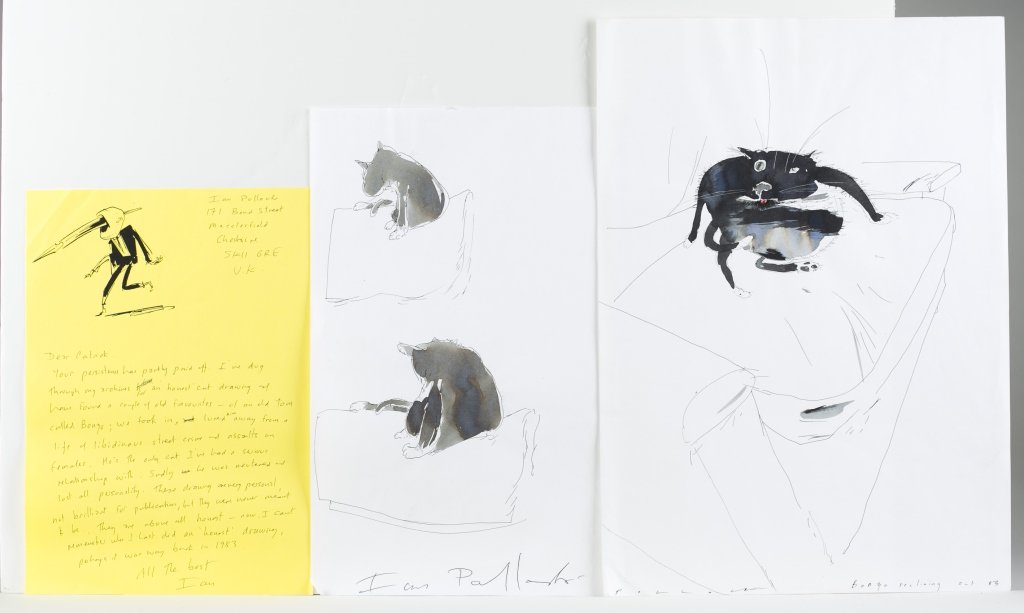 Ian Pollock
171 Bond Street
Macclesfield
Cheshire
SK11 6RE
U.K.
Dear Catnik
Your persistence has partly paid off. I've dug
through my archives for an honest cat drawing and
have found a couple of old favourites - of an old Tom
called Bongo; we took in, lured away from a
life of libidinous street crime and assaults on
females. He's the only cat I've had a serious
relationship with. Sadly he was neutered and
lost all personality. These drawing are very personal,
not brilliant for publication, but they were never meant
to be. They are above all honest - now, I can't
remember when I last did an 'honest' drawing,
perhaps it was way back in 1983.
All the best
Ian
Ian Pollock
Bongo reclining oct 83